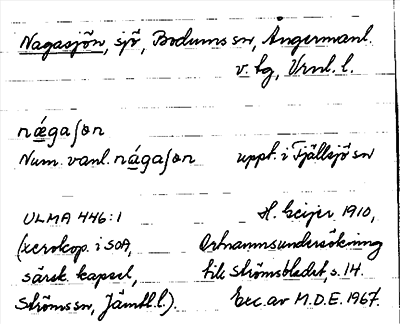 Nagasjön, sjö, Bodums sn, Ångermanl.
v. tg, Vrnl. l.
nǽgaʃɷn
Num. vanl. nágaʃɷn uppt. i Fjällsjö sn
ULMA 446:1 H. Geijer 1910,
(xerokop. i SOA, Ortnamnsundersökning
särsk. kapsel, till Strömsbladet, s. 14.
Ströms sn, Jämtl. l.) Exc. av M.D.E. 1967.